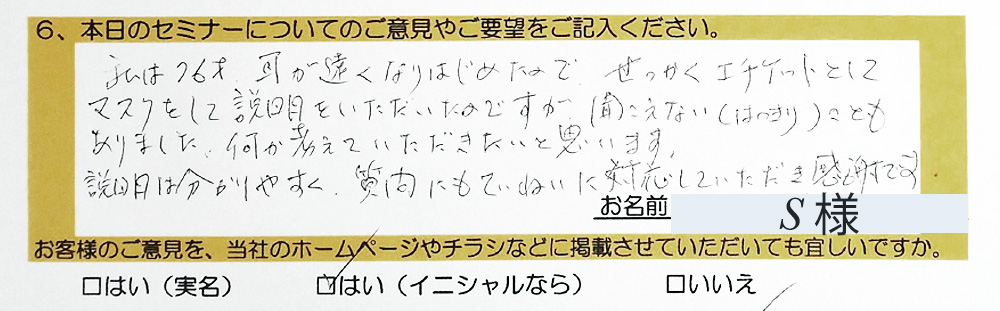 6、本日のセミナーについてのご意見やご要望をご記入ください。
私は76才、耳が遠くなりはじめたので、せっかくエチケットとして
マスクをして説明をいただいたのですが、聞こえない(はっきり)ことも
ありました。何か考えていただきたいと思います。
説明は分かりやすく、質問にもていねいに対応していただき感謝です
お名前 S 様
お客様のご意見を、当社のホームページやチラシなどに掲載させていただいても宜しいですか。
□はい(実名) □はい(イニシャルなら) □いいえ